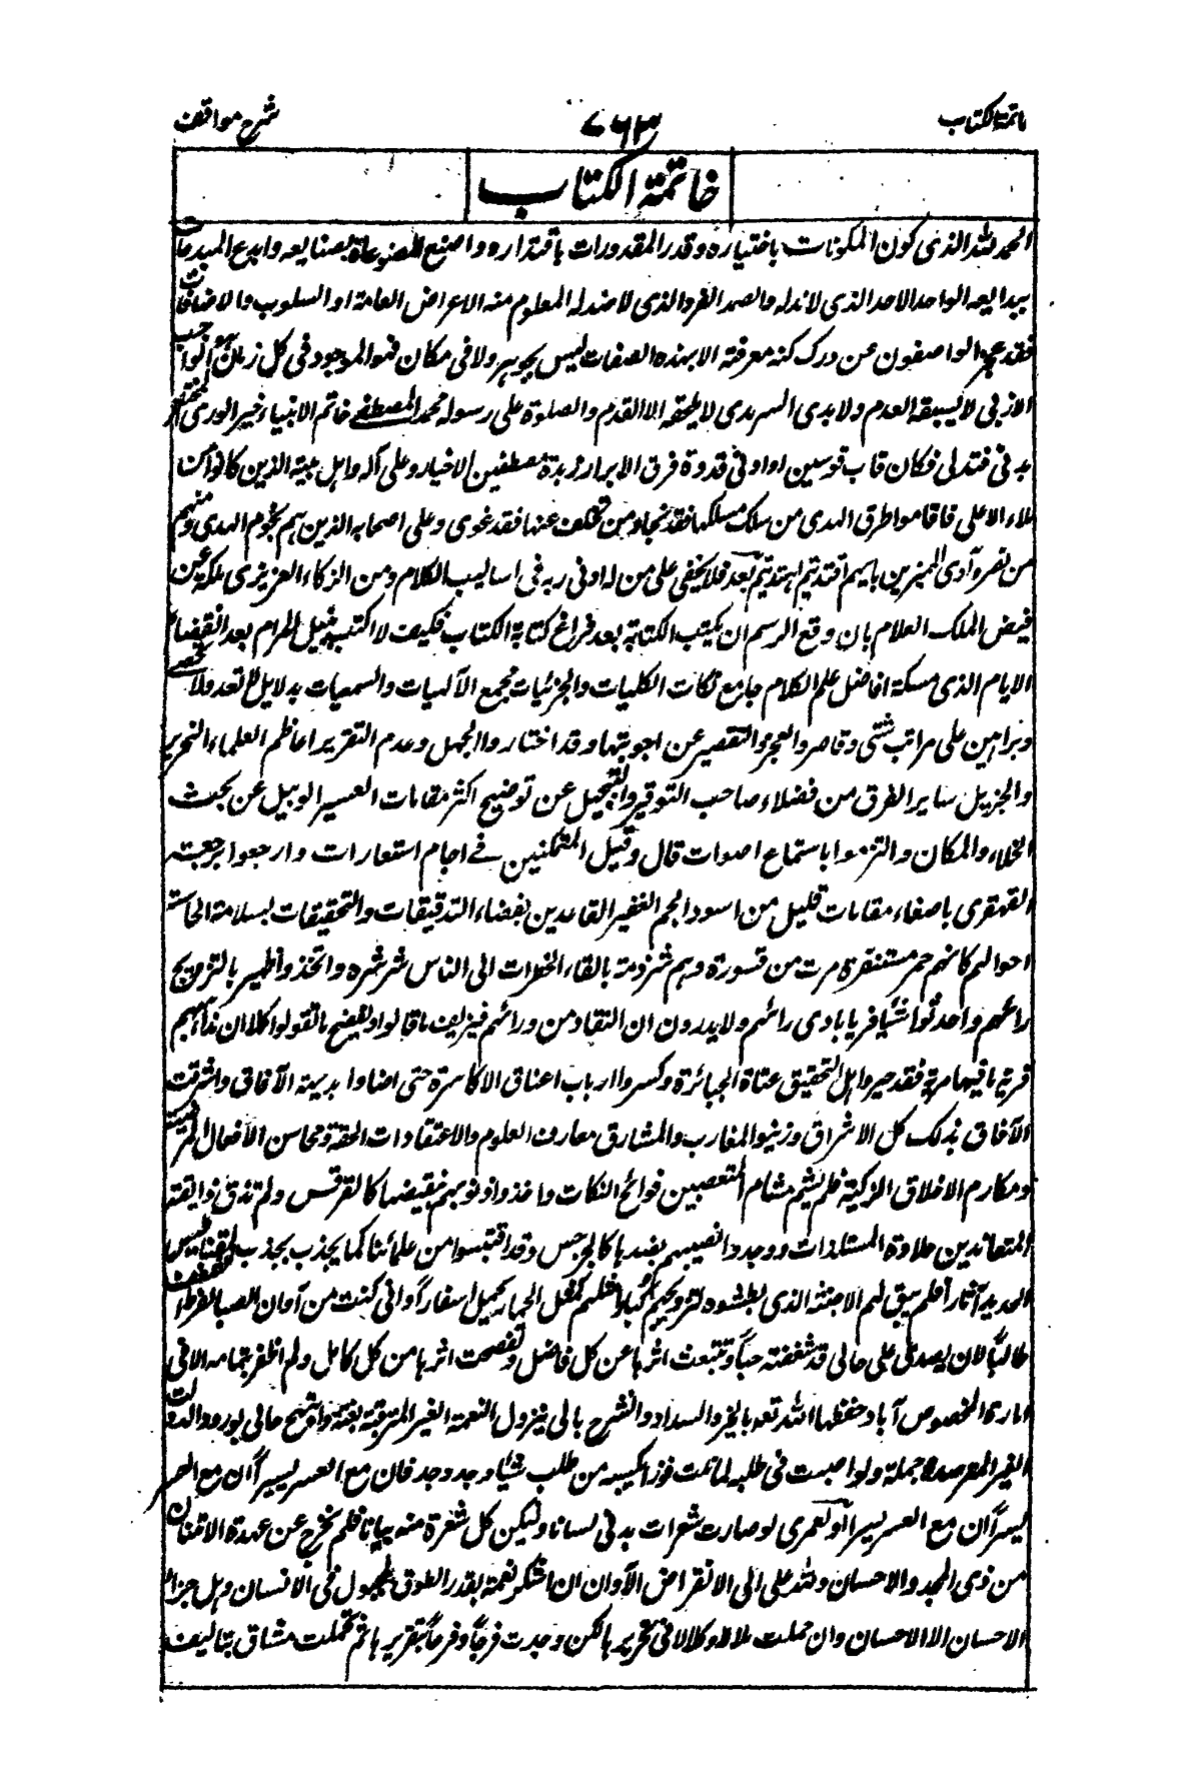 خاتمة الكتاب
۷۶۳
شرح مواقف
خاتمة الكتاب
الحمد لله الذى كون المكونات باختياره وقدر المقدورات باقتداره واصنع المصنوعات بصنايعه وابدع المبدعات
ببدايعه الواحد الاحد الذى لا ند له والصمد الفرد الذى لا ضد له المعلوم منه الاعراض العامة او السلوب والاضافات
فقد عجز الواصفون عن درك كنه معرفته الا بهذه الصفات ليس بجوهر ولا فى مكان فهو الموجود فى كل زمان الواجب
الازلى لا يسبقه العدم ولابدى السرمدى لا يلحقه الا القدم والصلوة على رسوله محمد المصطفى خاتم الانبياء خير الورى
دنى فتدلى فكان قاب قوسين او ادنى قدوة فرق الابرار زبدة مصطفين الاخيار وعلى آله واهل بيته الذين كانوا من
ملاء الاعلى فاقاموا طرق الهدى من سلك مسلكها فقد نجا ومن تخلف عنها فقد غوى وعلى اصحابه الذين هم نجوم الهدى ومنهم
من نصر وآوى المبزين بايهم اقتديتم اهتديتم وبعد فلا يخفى على من له ادنى ربه فى اساليب الكلام ومن الزكاء العزيزى ملكة عن
فيض الملك العلام بان وقع الرسم ان يكتب الكتابة بعد فراغ كتابة الكتاب فكيف لا اكتب بنيل المرام بعد انقضاء
الايام الذى مسكة افاضل علم الكلام جامع نكات الكليات والجزئيات مجمع الآلهيات والسمعيات بدلايل لا تعد ولا تحصى
وبراهين على مراتب شتى وقاصر والعجز والتقصير عن اجوبتها وقد اختاروا الجهل وعدم التقرير اعاظم العلماء النحرير
والجزيل ساير الفرق من فضلاء صاحب التوقير والتبجيل عن توضيح اكثر مقامات العسير الوبيل عن بحث
الخلاء والمكان والتزموا باستماع اصوات قال وقيل المتمكنين فى اجام استعارات وارجعوا برجعت
القهقرى باصغاء مقامات قليل من اسود الجم الغفير القاعدين بفضاء التدقيقات والتحقيقات لسلامة الحاسة
احوالهم كانهم حمر مستنفرة فرت من قسورة وهم شرذمة بالقاء الخطرات الى الناس شرشره واتخذوا ظهير بالترويج
رائهم واحدثوا شيئا فريا بادى رائهم ولا يدرون ان النقاد من ورائهم فيزيف ما قالوا ويفضح ما تقولوا كلا ان هذا
فرية ما فيها مرية فقد حير واهل التحقيق عتاة الجبائرة وكسروا ارباب اعناق الاكاسرة حتى اضاوا بديهة الآفاق واشرقت
الآفاق بذلك كل الاشراق وزينوا المغارب والمشارق معارف العلوم والاعتقادات الحقة ومحاسن الافعال
ومكارم الاخلاق الزكية فلم يشم مشام المتعصبين فوائح النكات واخذوا نوبهم نقيضها كالقرقس ولم تذق ذايقة
المتعاندين حلاوة المستلذات ووجدوا نصيبهم بضدها كالجرجس وقد اقتبسوا من علمائنا كما يجذب بجذب المقناطيس
الحديد آثارا فلم يبق لهم الا جثة الذى بطشوه لترويجهم فمثلهم كمثل الحمار يحمل اسفارا وانى كنت من آوان الصبا
طالبا لان يصدق على حالى قد شغفته حبا وتتبعت اثرها عن كل فاضل وتفحصت اثرها من كل كامل ولم اظفر بتمامه الا فى
امارة المخصوص آباد حفظها الله تعه بالخير والسداد وانشرح بالى بنزول النعمة الغير المترقبة بغتة واتضح حالى بورود الدولت
الغير المترصدة جملة ولو اصبت فى طلبه لما نلت فوزا كيسه من طلب شيئا وجد وجد فان مع العسر يسرا ان مع العسر
يسرا ان مع العسر يسرا ولعمرى لو صارت شعرات بدنى لسانا وليكن كل شعرة منه بيانا فلم يخرج عن عهدة الامتنان
من ذى المجد والاحسان ولله على الى الانقراض الآوان ان اشكر نعمة بقدر الطوق المجبول فى الانسان وهل جزاء
الاحسان الا الاحسان وان حملت ملالا وكلالا فى تحريرها لكن وجدت فرجا وفرحا بتقريرها ثم تحملت مشاق بتاليف